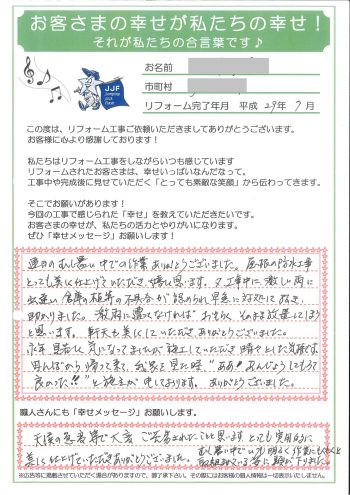 お客さまの幸せが私たちの幸せ！
それが私たちの合言葉です♪
JJF
お名前
市町村
リフォーム完了年月 平成 29年 7月
この度は、リフォーム工事ご依頼いただきましてありがとうございます。
お客様に心より感謝しております！
私たちはリフォーム工事をしながらいつも感じています
リフォームされたお客さまは、幸せいっぱいなんだなって。
工事中や完成後に見せていただく「とっても素敵な笑顔」から伝わってきます。
そこでお願いがあります！
今回の工事で感じられた「幸せ」を教えていただきたいです。
お客さまの幸せが、私たちの活力とやりがいになります。
ぜひ「幸せメッセージ」お願いします！
連日のむし暑い中での作業ありがとうございました。屋根の防水工事
とっても美しく仕上げていただき 嬉しく思います。又、工事中に、激しい雨に
出会い 倉庫の 不具合が 早急に対処して頂き
助かりました。 なければ おそらく そのまま放置してしまう
と思います。 軒天も美しくしていただき ありがとうございました。
永年 気になってましたが 施工していただき 晴々とした気持です
から帰って来て 我家を見た時 "ああ! よかった
良かった!!" と 中で思います。 ありがとうございました。
職人さんにも「幸せメッセージ」お願いします。
天候の 等で大変 ご苦労されたことと思います とても実用的に
美しく仕上げていただき ありがとうございました。
むし暑い中で いつも明るく作業に
姿に 頭が下りました。
※広告等に掲載させていただく場合がありますので、御了承下さい。その際にはお客様の個人情報は一切表示いたしません。